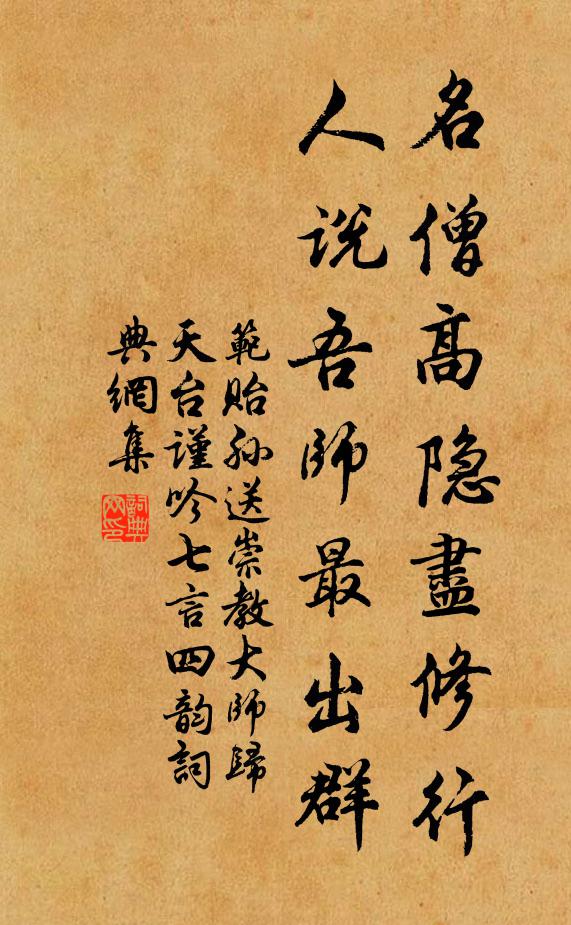 名僧高隐盡修行
人说吾師最出群
範貽孙送崇教大師歸
天台谨吟七言四韵詞
典網集
詞典網印